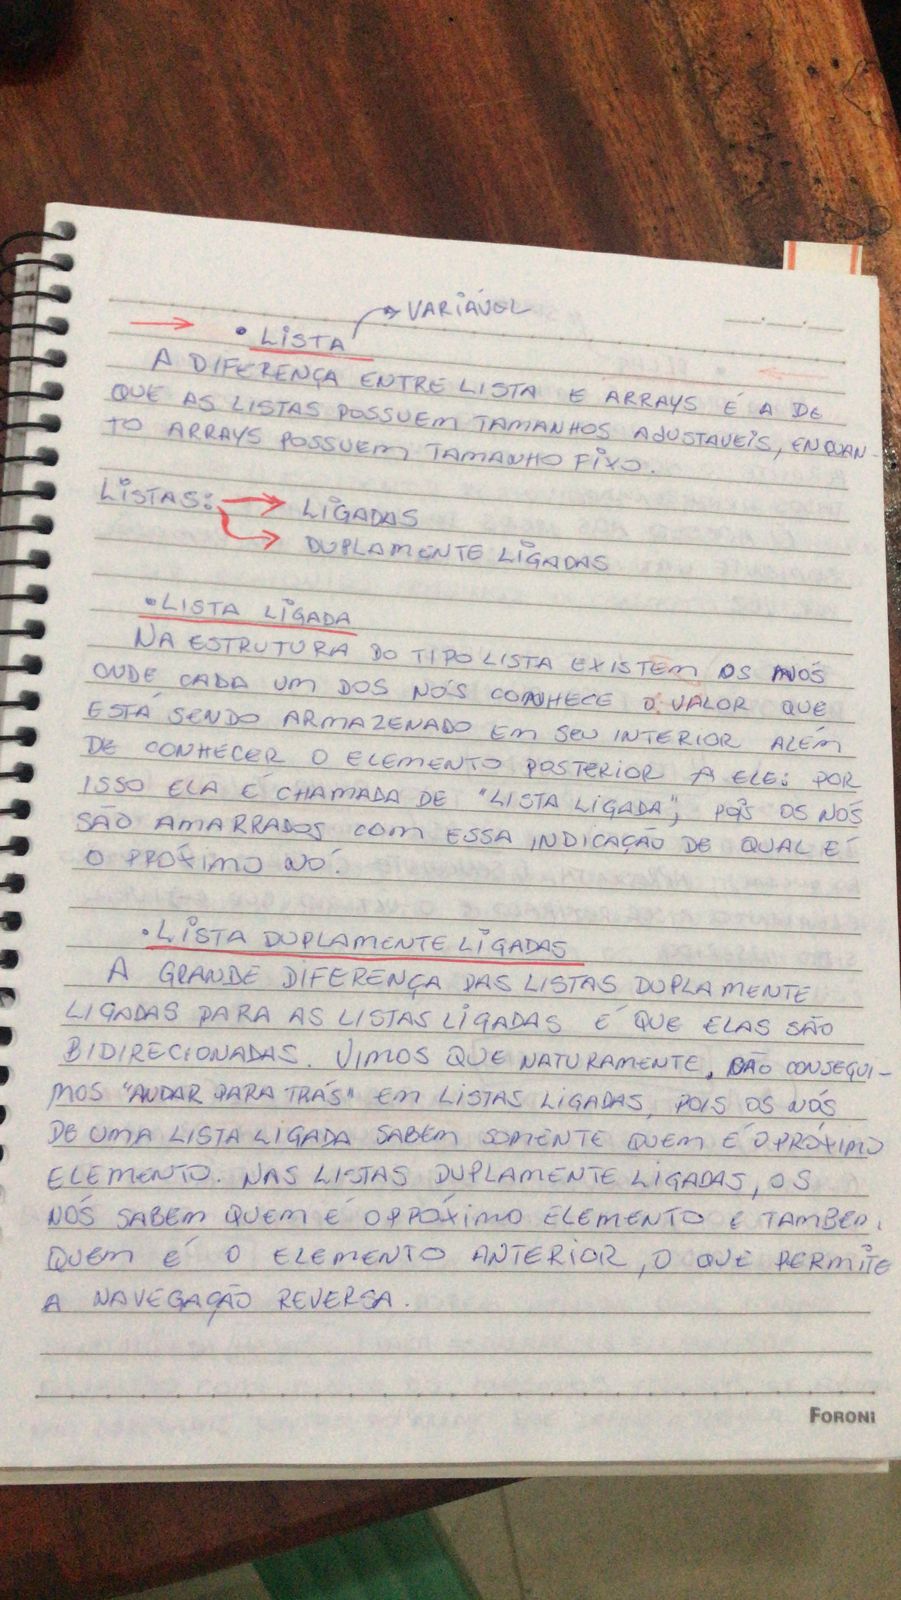 → VARIÁVEL
→ • LISTA
A DIFERENÇA ENTRE LISTA E ARRAYS É A DE
QUE AS LISTAS POSSUEM TAMANHOS AJUSTAVEIS, ENQUAN-
TO ARRAYS POSSUEM TAMANHO FIXO.
LISTAS: → LIGADAS
→ DUPLAMENTE LIGADAS
• LISTA LIGADA
NA ESTRUTURA DO TIPO LISTA EXISTEM OS NÓS
ONDE CADA UM DOS NÓS CONHECE O VALOR QUE
ESTÁ SENDO ARMAZENADO EM SEU INTERIOR ALÉM
DE CONHECER O ELEMENTO POSTERIOR A ELE: POR
ISSO ELA É CHAMADA DE "LISTA LIGADA", POIS OS NÓS
SÃO AMARRADOS COM ESSA INDICAÇÃO DE QUAL É
O PRÓXIMO NÓ.
• LISTA DUPLAMENTE LIGADAS
A GRANDE DIFERENÇA DAS LISTAS DUPLAMENTE
LIGADAS PARA AS LISTAS LIGADAS É QUE ELAS SÃO
BIDIRECIONADAS. VIMOS QUE NATURAMENTE, NÃO CONSEGUI-
MOS "ANDAR PARA TRÁS" EM LISTAS LIGADAS, POIS OS NÓS
DE UMA LISTA LIGADA SABEM SOMENTE QUEM É O PRÓXIMO
ELEMENTO. NAS LISTAS DUPLAMENTE LIGADAS, OS
NÓS SABEM QUEM É O PRÓXIMO ELEMENTO E TAMBEM,
QUEM É O ELEMENTO ANTERIOR, O QUE PERMITE
A NAVEGAÇÃO REVERSA.
FORONI